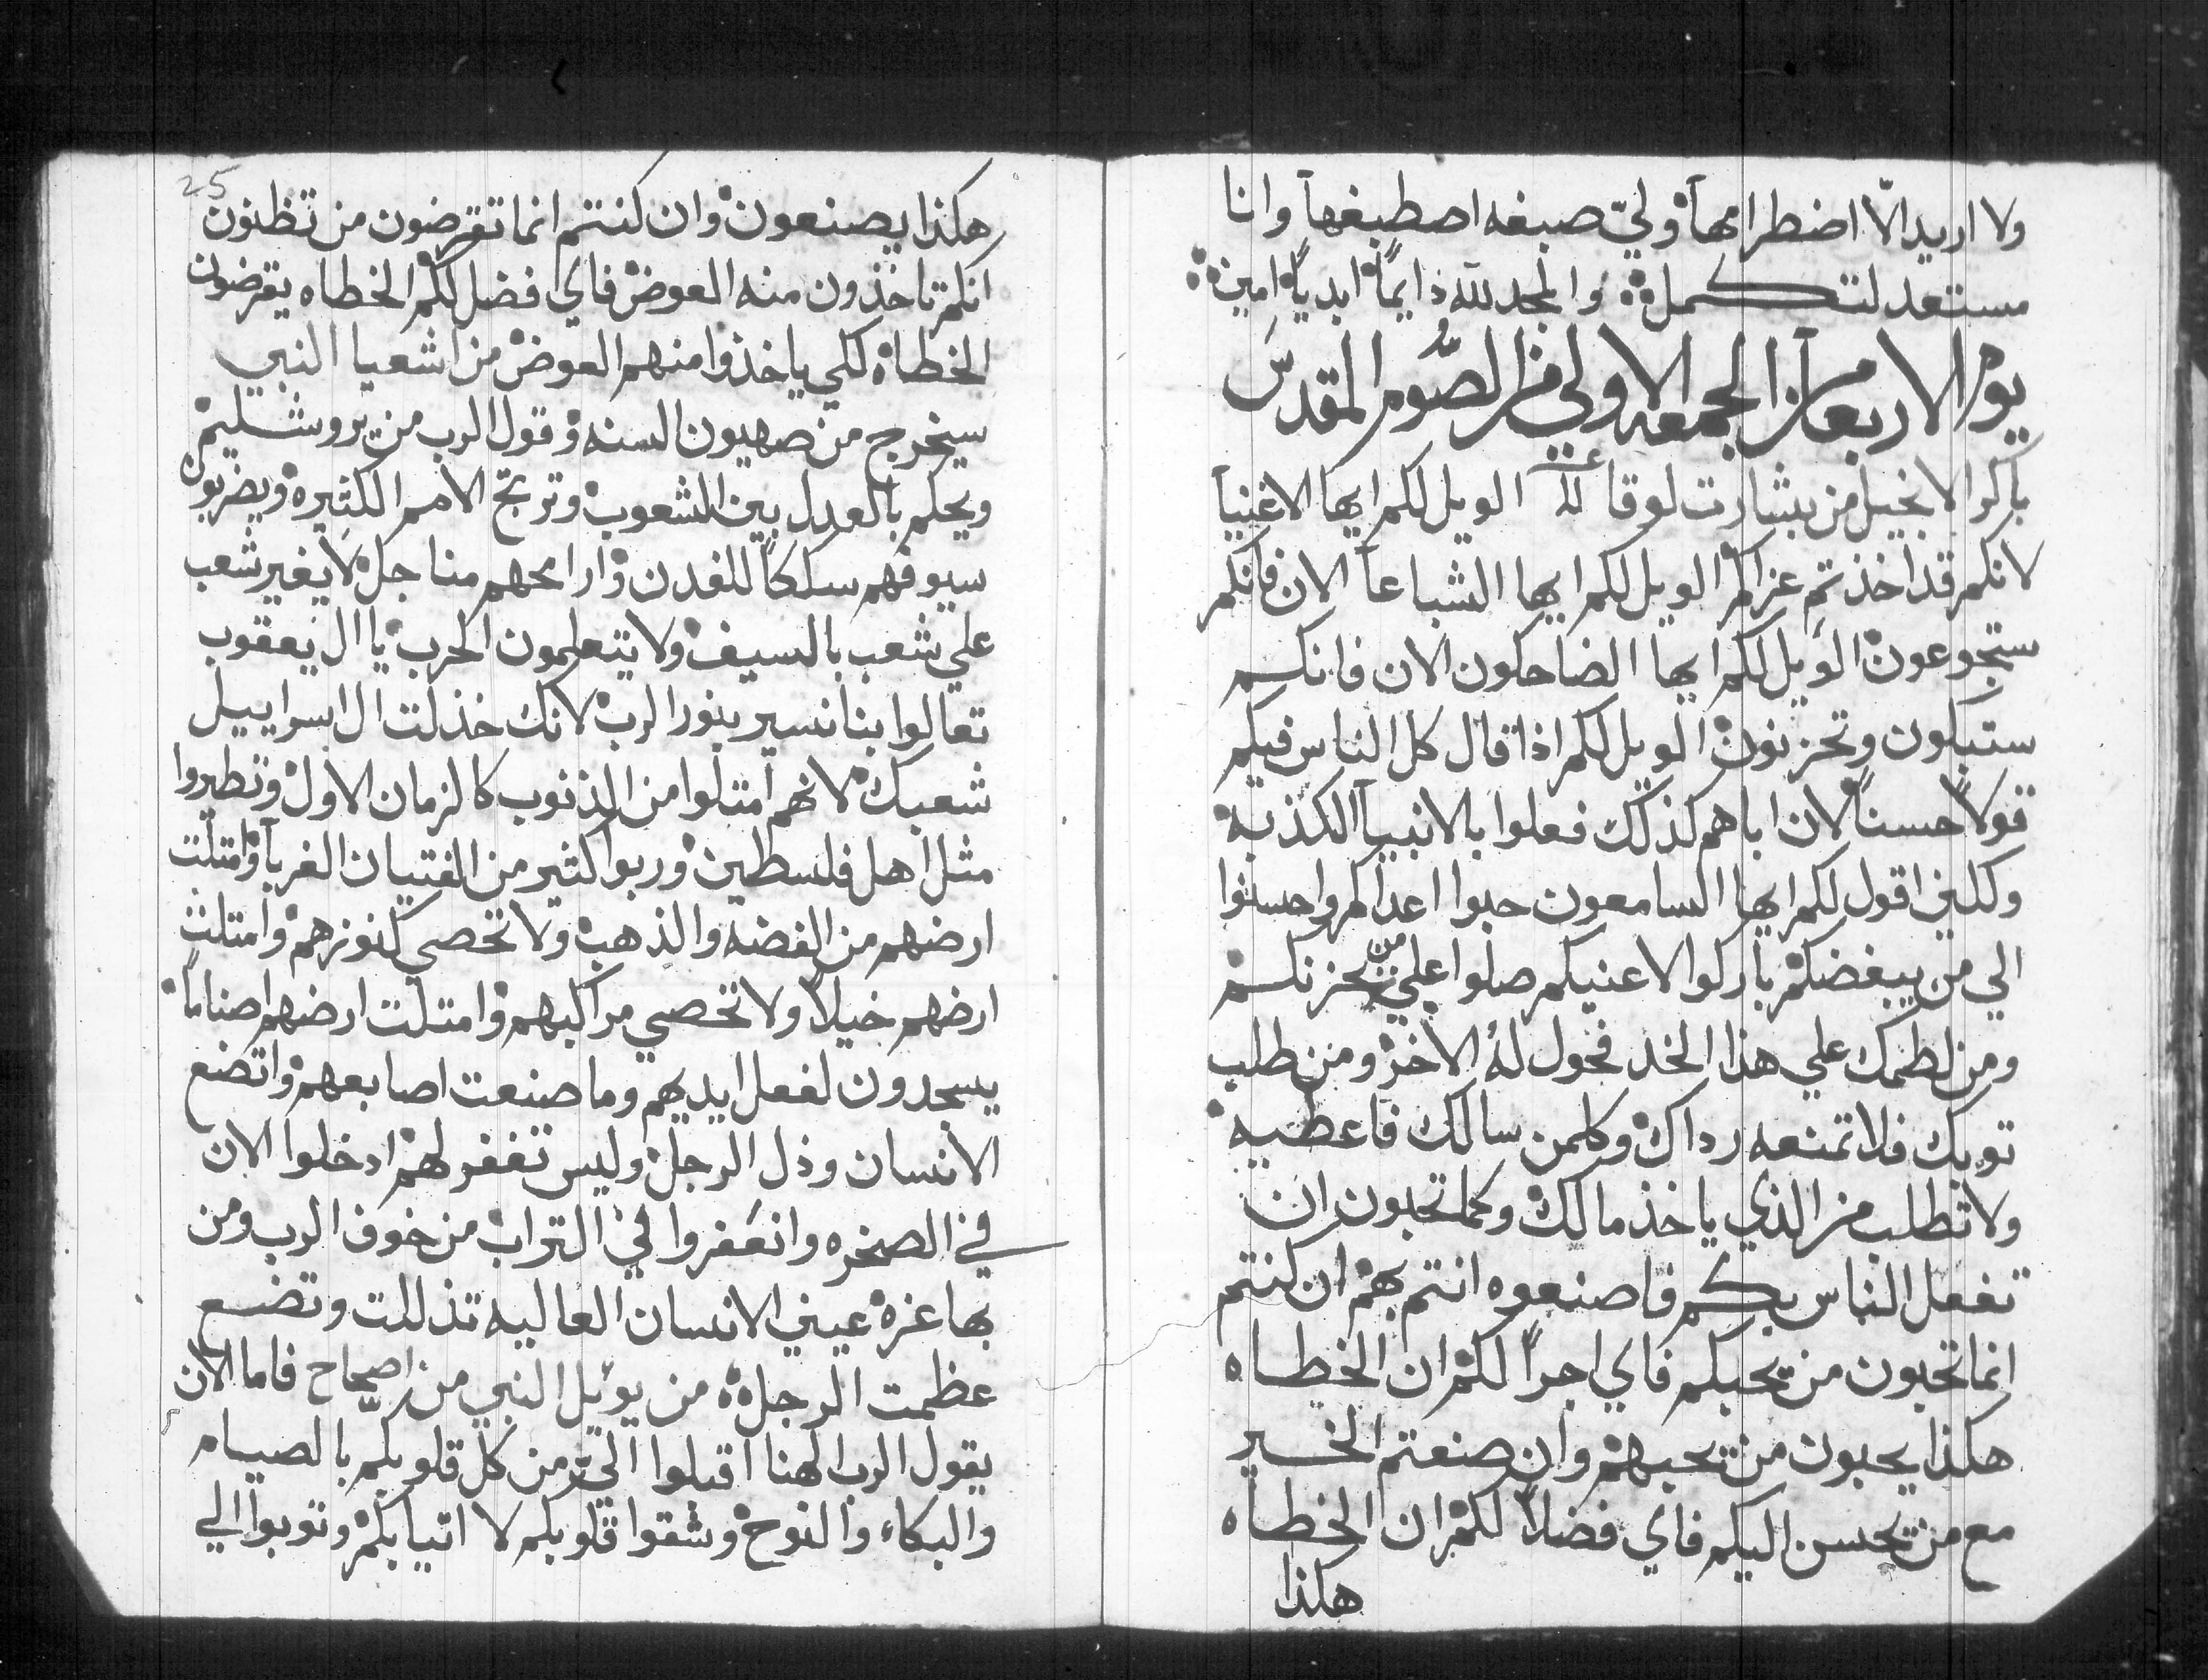 ولا اريد الّا اضطرامهاۤ ولي صبغه اصطبغهاۤ وانا
مستعد لتكمل والمجد لله دايماً ابدياً امين
يوم الاربعا من الجمعه الاولي من الصوم المقدس
باكر الانجيل من بشارت لوقا الويل لكم ايها الاغنياۤ
لانكم قد اخذتم عزاكم الويل لكم ايها الشباعاۤ الان فانكم
ستجوعون الويل لكم ايها الضاحكون الان فانكم
ستبكون وتحزنون الويل لكم اذا قال كل الناس فيكم
قولاً حسناً لان اباهم كذلك فعلوا بالانبياۤ الكذبه
ولكني اقول لكم ايها السامعون حبوا اعداكم واحسنوا
الي من يبغضكم باركوا لاعنيكم صلوا علي من يحزنكم
ومن لطمك علي هذا الخد فحول له الاخر ومن طلب
توبك فلا تمنعه رداك وكلمن سالك فاعطيه
ولا تطلب من الذي ياخذ مالك وكما تحبون ان
تفعل الناس بكم فاصنعوه انتم بهم ان كنتم
انما تحبون من يحبكم فاي اجراً لكم ان الخطاه
هكذا يحبون من يحبهم وان صنعتم الخير
مع من يحسن اليكم فاي فضلاً لكم ان الخطاه
هكذا
25
هكذا يصنعون وان كنتم انما تقرضون من تظنون
انكم تاخذون منه العوض فاي فضل لكم الخطاه يقرضون
الخطاه لكي ياخذوا منهم العوض من اشعيا النبي
سيخرج من صهيون السنه وقول الرب من يروشليم
ويحكم بالعدل بين الشعوب وتربح الامم الكثيره ويضربون
سيوفهم سككاً للفدن وارامحهم مناجل لا يغير شعب
علي شعب بالسيف ولا يتعلمون الحرب يا ال يعقوب
تعالوا بنا نسير بنور الرب لانك خذلت ال اسراييل
شعبك لانهم امتلوا من الذنوب كالزمان الاول وتطيروا
مثل اهل فلسطين وربوا كثير من الفتيان الغرباۤ وامتلت
ارضهم من الفضه والذهب ولا تحصي كنوزهم وامتلت
ارضهم خيلاً ولا تحصي مراكبهم وامتلت ارضهم اصناماً
يسجدون لفعل ايديهم وما صنعت اصابعهم واتضع
الانسان وذل الرجل وليس تغفر لهم ادخلوا الان
في الصخره وانعفروا في التراب من خوف الرب ومن
بها عزه عيني الانسان العاليه تذللت وتضع
عظمت الرجل من يويل النبي من اصحاح فاما الان
يقول الرب الهنا اقبلوا الي من كل قلوبكم بالصيام
والبكاء والنوح وشقوا قلوبكم لا اتيابكم وتوبوا الي